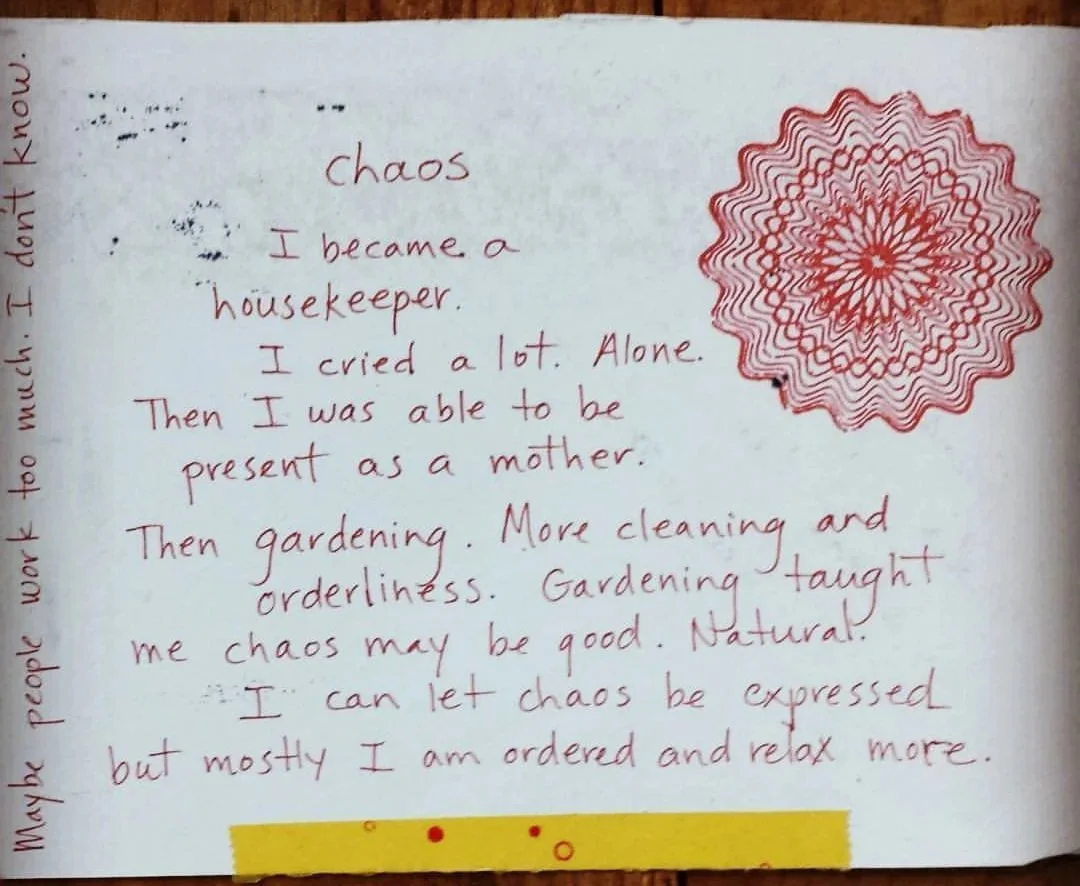 Chaos
I became a
housekeeper.
I cried a lot. Alone.
Then I was able to be
present as a mother.
Then gardening. More cleaning and
orderliness. Gardening taught
me chaos may be good. Natural.
I can let chaos be expressed
but mostly I am ordered and relax more.
Maybe people work too much. I don't know.